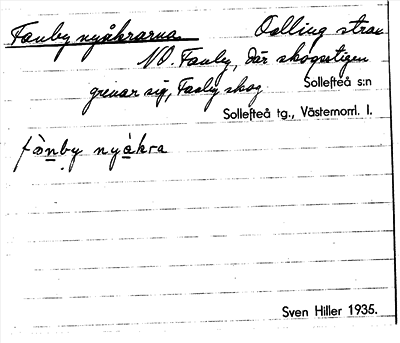 Fanby nyåkrarna Odling strax
NO. Fanby, där skogsstigen
grenar sig, Fanby skog. Sollefteå s:n
Sollefteå tg., Västernorrl. l.
fànby nyåkra
Sven Hiller 1935.